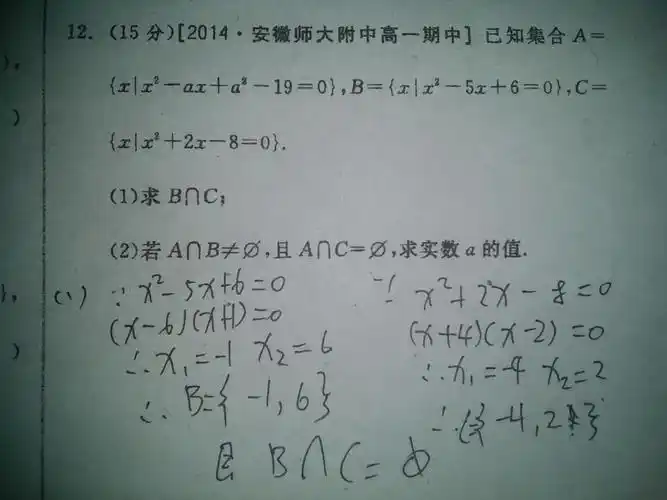 12. (15 分)[2014·安徽师大附中高一期中] 已知集合 A=
{x|x²-ax+a²-19=0},B={x|x²-5x+6=0},C=
{x|x²+2x-8=0}.
(1)求 B∩C;
(2)若 A∩B≠∅,且 A∩C=∅,求实数 a 的值.
(1) ∵ x²-5x+6=0
(x-6)(x+1)=0
∴ x₁=-1 x₂=6
∴ B={-1,6}
∵ x²+2x-8=0
(x+4)(x-2)=0
∴ x₁=-4 x₂=2
∴ {-4,2}
B∩C=∅